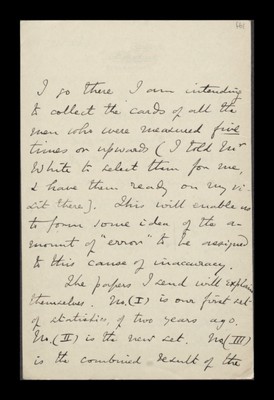 I go there I am intending
to collect the cards of all the
men who were measured five
times or upwards (I told Mr
White to select them for me,
& have them ready on my vi-
sit there]. This will enable us
to form some idea of the a-
mount of "error" to be assigned
to this cause of inaccuracy.
The papers I send will explain
themselves. No.(I) is our first set
of statistics, of two years ago.
No.(II) is the new set. No(III)
is the combined result of the